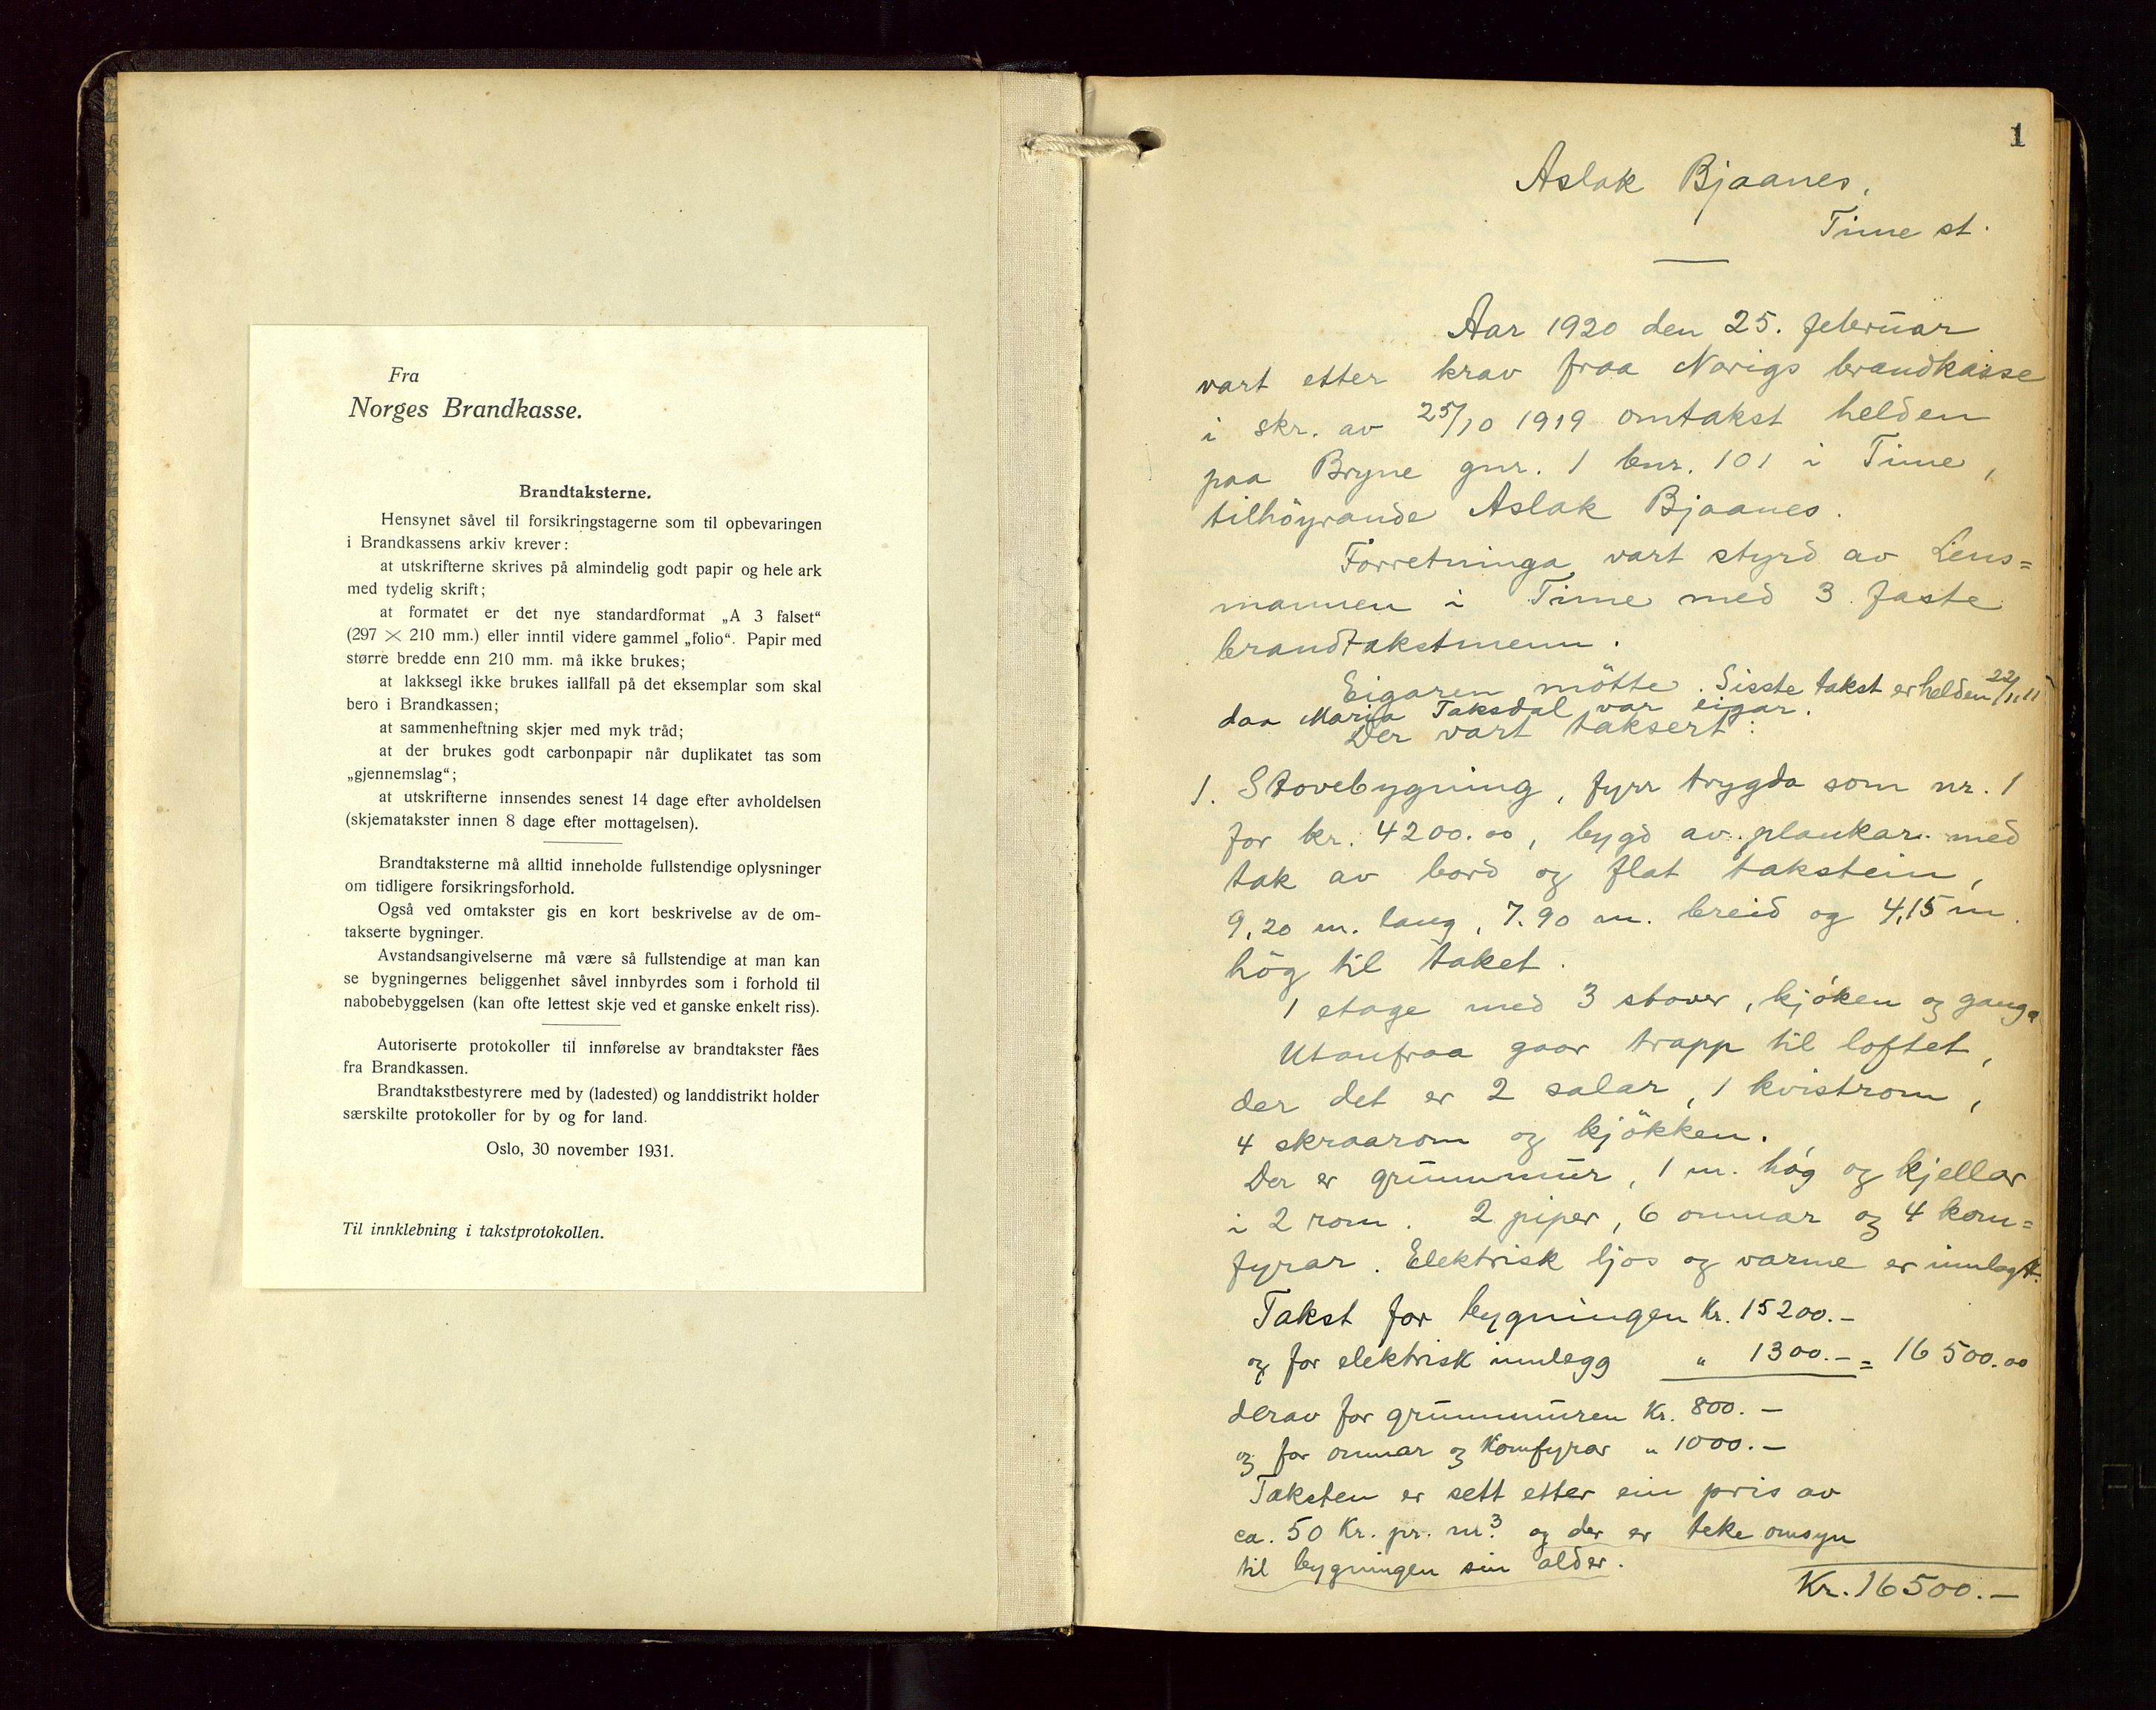 Fra
Norges Brandkasse.
Brandtaksterne.
Hensynet såvel til forsikringstagerne som til opbevaringen
i Brandkassens arkiv krever:
at utskrifterne skrives på almindelig godt papir og hele ark
med tydelig skrift;
at formatet er det nye standardformat „A 3 falset“
(297 × 210 mm.) eller inntil videre gammel „folio“. Papir med
større bredde enn 210 mm. må ikke brukes;
at lakksegl ikke brukes iallfall på det eksemplar som skal
bero i Brandkassen;
at sammenheftning skjer med myk tråd;
at der brukes godt carbonpapir når duplikatet tas som
„gjennemslag“;
at utskrifterne innsendes senest 14 dage efter avholdelsen
(skjematakster innen 8 dage efter mottagelsen).
Brandtaksterne må alltid inneholde fullstendige oplysninger
om tidligere forsikringsforhold.
Også ved omtakster gis en kort beskrivelse av de om-
takserte bygninger.
Avstandsangivelserne må være så fullstendige at man kan
se bygningernes beliggenhet såvel innbyrdes som i forhold til
nabobebyggelsen (kan ofte lettest skje ved et ganske enkelt riss).
Autoriserte protokoller til innførelse av brandtakster fåes
fra Brandkassen.
Brandtakstbestyrere med by (ladested) og landdistrikt holder
særskilte protokoller for by og for land.
Oslo, 30 november 1931.
Til innklebning i takstprotokollen.
1
Aslak Bjaanes,
Time st.
Aar 1920 den 25. februar
vart etter krav fraa Norigs brandkasse
i skr. av 25/10 1919 omtakst helden
paa Bryne gnr. 1 bnr. 101 i Time,
tilhöyrande Aslak Bjaanes.
Forretninga vart styrd av Lens=
mannen i Time med 3 faste
brandtakstmenn.
Eigaren mötte. Sisste takst er helden 22/11.11
daa Maria Taksdal var eigar.
Der vart taksert:
1. Stovebygning, fyrr trygda som nr. 1
for kr. 4200.00, bygd av plankar med
tak av bord og flat takstein,
9,20 m. lang, 7.90 m. breid og 4,15 m.
hög til taket.
1 etage med 3 stover, kjöken og gang.
Utanfraa gaar trapp til loftet,
der det er 2 salar, 1 kvistrom,
4 skraarom og kjökken.
Der er grunnmur, 1 m. hög og kjellar
i 2 rom. 2 piper, 6 omnar og 4 kom=
fyrar. Elektrisk ljos og varme er innlagt.
Takst for bygningen Kr. 15200.-
og for elektrisk innlegg " 1300.- = 16500.00
derav for grunnmuren Kr. 800.-
og for omnar og Komfyrar " 1000.-
Taksten er sett etter ein pris av
ca. 50 Kr. pr. m³. og der er teke omsyn
til bygningen sin alder.
Kr. 16500.-